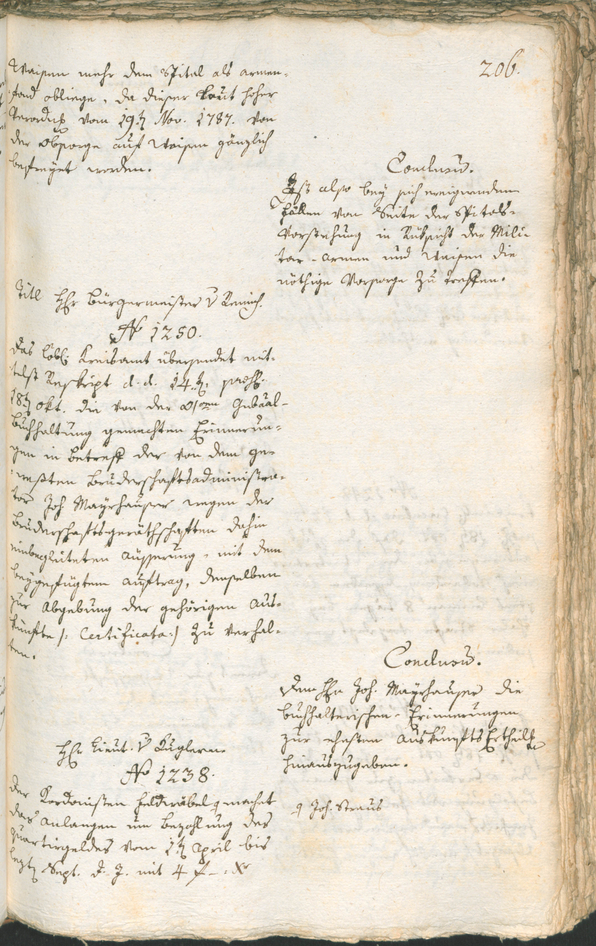 206.
Waisen mehr dem Spital als armen-
fond obliege, da dieser laut hoher
vom 19t Nov. 1787. von
der Obsorge auf Waisen gänzlich
befreyet worden.
Conclusum.
Ist also bey sich ereignendem
Fällen von Seite der Spitals-
Vorstehung in Rüksicht der Mili-
tar-armen und Waisen die
nöthige Vorsorge zu treffen.
Titl Hr Bürgermeister v
No 1250.
Das löbl. Kreisamt übersendet mit-
telst Reskript d. d. 14t, praes.
18t Okt. die von der Gubernial-
Buchhaltung gemachten Erinnerun-
gen in Betreff der von dem ge-
westen Bruderschaftsadministra-
tor Joh Mayrhauser wegen der
Bruderschaftsgeräthschaften dahin
einbegleiteten Äusserung, mit dem
beygefügten Auftrag, denselben
zur Abgebung der gehörigen Aus-
künfte /: Certificata :/ zu verhal-
ten.
Conclusum.
Dem Hrn Joh. Mayrhauser die
buchhalterischen Erinnerungen
zur ehesten Auskunfts Ertheilung
hinauszugeben.
Hr Lieut. v Kuglern
No 1238.
Der Kordonisten Feldwäbel machet
das Anlangen um Bezahlung des
Quartiergeldes vom 1t April bis
lezt Sept. d. J. mit 4 f - xr
Joh. Straus